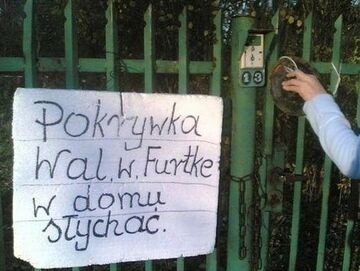 13
Pokrywka
Wal. w. Furtke
w domu
słychać.